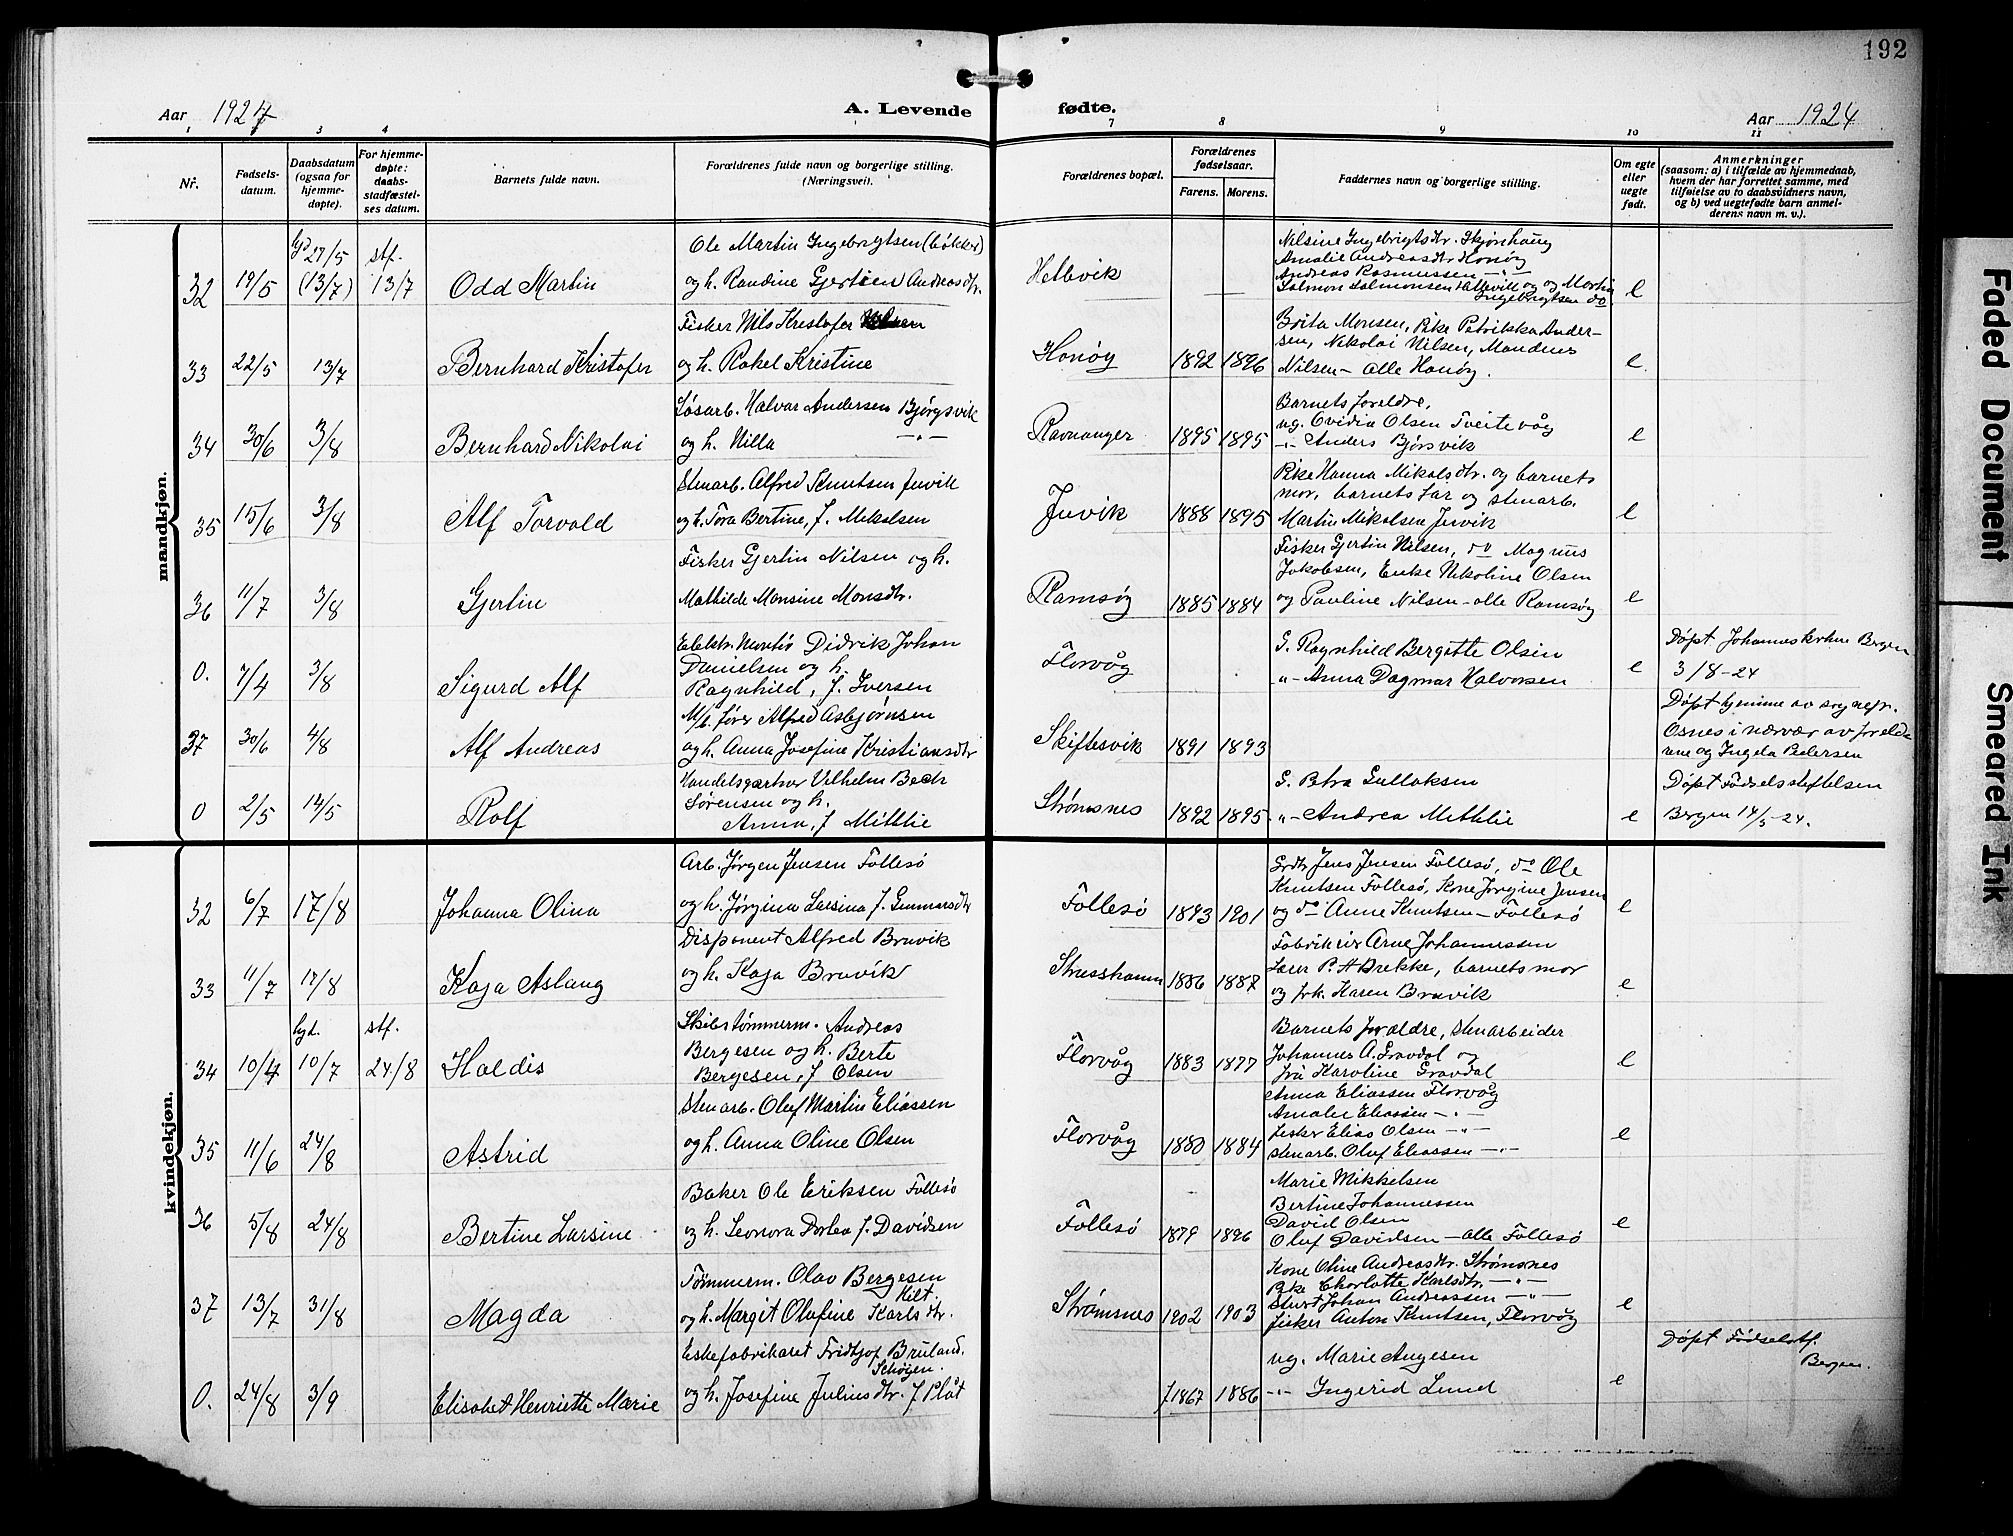 192
Aar 1924
A. Levende
fødte.
Aar 1924
1 2 3 4 7 8 9 10 11
Nr.
Fødsels-
datum.
Daabsdatum
(ogsaa for
hjemme-
døpte).
For hjemme-
døpte:
daabs-
stadfæstel-
ses datum.
Barnets fulde navn.
Forældrenes fulde navn og borgerlige stilling.
(Næringsvei).
Forældrenes bopæl.
Forældrenes
fødselsaar.
Farens. Morens.
Faddernes navn og borgerlige stilling.
Om egte
eller
uegte
født.
Anmerkninger
(saasom: a) i tilfælde av hjemmedaab,
hvem der har forrettet samme, med
tilføielse av to daabsvidners navn,
og b) ved uegtefødte barn anmel-
derens navn m. v.).
mandkjøn.
32 19/5 27/5 (13/7) stf. 13/7 Odd Martin
Ole Martin Ingebrigtsen (bøkker)
og h. Randine Gjertine Andreasdtr.
Hellevik
Nilsine Ingebrigtsdtr. Skjønhaug
Amalie Andreasdtr Hanøy
Andreas Rasmussen -"-
Salmon Salmonsen Hellevik og Martin
Ingebrigtsen do
e
33 22/5 13/7 Bernhard Kristofer
Fisker Nils Kristofer Nilsen
og h. Rakel Kristine
Hanøy 1892 1896
Brita Monsen, Pike Petrikka Ander-
sen, Nikolai Nilsen, Mandrus
Nilsen - alle Hanøy.
e
34 30/6 3/8 Bernhard Nikolai
Løsarb. Halvar Andersen Bjørgsvik
og h. Nilla -"-
Ravnanger 1895 1895
Barnets foreldre,
ug. Ovidia Olsen Tveitevåg
-"- Anders Bjørsvik
e
35 15/6 3/8 Alf Torvald
Stenarb. Alfred Knutsen Juvik
og h. Tora Bertine, f. Mikalsen
Juvik 1888 1895
Pike Hanna Mikalsdtr. og barnets
mor, barnets far og stenarb.
Martin Mikalsen Juvik
e
36 11/7 3/8 Gjertin
Fisker Gjertin Nilsen og h.
Mathilde Monsine Monsdtr.
Ramsøy 1885 1884
Fisker Gjertin Nilsen, do Magnus
Jakobsen, Enke Nikoline Olsen
og Pauline Nilsen - alle Ramsøy
e
0. 7/4 3/8 Sigurd Alf
Elektr. Montør Didrik Johan
Danielsen og h.
Ragnhild, f. Iversen
Florvåg
G. Ragnhild Bergitte Olsen
"- Anna Dagmar Halvorsen
e
Døpt Johanneskirken Bergen
3/8-24
37 30/6 4/8 Alf Andreas
M/b. fører Alfred Asbjørnsen
og h. Anna Josefine Kristiansdtr
Skiftesvik 1891 1893
Døpt hjemme av sognepr.
Osnes i nærvær av foreld-
rene og Ingela Pedersen
0 2/5 14/5 Rolf
Handelsgartner Vilhelm Bech
Sørensen og h.
Anna, f. Mithlie
Strømsnes 1892 1895
G. Petra Gullaksen
"- Andrea Methlie
e
Døpt Fødselsstiftelsen
Bergen 14/5-24.
kvindekjøn.
32 6/7 17/8 Johanna Olina
Arb. Jørgen Jensen Follesø
og h. Jørgina Larsina f. Gunnarsdtr
Follesø 1893 1901
Grdbr Jens Jensen Follesø, do Ole
Knutsen Follesø, Kone Jørgine Jensen
og do Anne Knutsen - Follesø
e
33 11/7 17/8 Kaja Aslaug
Disponent Alfred Bruvik
og h. Kaja Bruvik
Strusshamn 1886 1887
Fabrikeier Arne Johannessen
Lærer P. H Brekke, barnets mor
og frk. Karen Bruvik
e
34 10/4 hjd. 10/7 stf. 24/8 Haldis
Skibstømmerm. Andreas
Bergesen og h. Berte
Bergesen, f Olsen
Florvåg 1883 1877
Barnets foraldre, stenarbeider
Johannes A. Gravdal og
fru Karoline Gravdal
e
35 11/6 24/8 Astrid
Stenarb. Oluf Martin Eliassen
og h. Anna Oline Olsen
Florvåg 1880 1884
Anna Eliassen Florvåg
Amalie Eliassen -"-
fisker Elias Olsen -"-
stenarb. Oluf Eliassen -"-
e
36 5/8 24/8 Bertine Larsine
Baker Ole Eriksen Follesø
og h. Leonora Dortea f. Davidsen
Follesø 1879 1896
Marie Mikkelsen
Bertine Johannessen
David Olsen
Oluf Davidsen - alle Follesø
e
37 13/7 31/8 Magda
Tømmerm. Olav Bergesen
Hilt.
og h. Margit Olufine Karlsdtr.
Strømsnes 1902 1903
Kone Oline Andreasdtr. Strømsnes
Pke Charlotte Karlsdtr. -"-
Johan Andreassen -"-
fisker Anton Knutsen, Florvåg
e
0. 24/8 3/9 Elisabet Henriette Marie
Eskefabrikant Fridtjof Bruland.
Schøgen.
og h. Josefine Juliusdtr. f Plåt
f 1867 1886
ug. Marie Angesen
-"- Ingerid Lund
e
Døpt Fødselsstf.
Bergen.
Faded Document
Smeared Ink